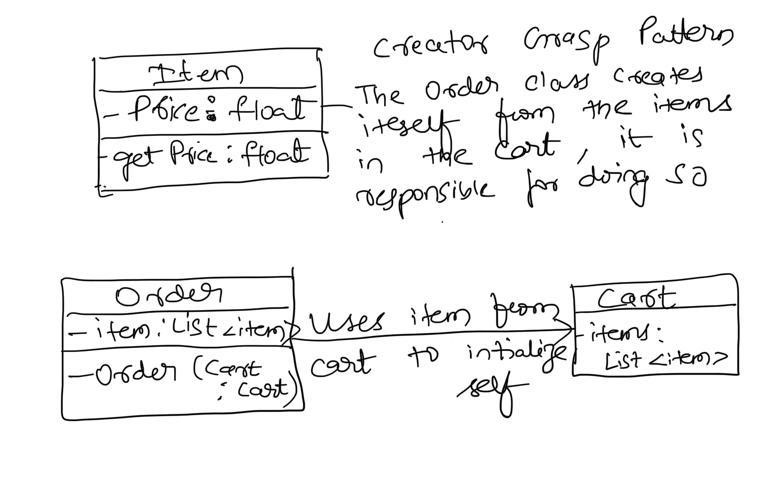 Creator Grasp Pattern
Item
- Price : float
- get Price : float
The Order class creates
iteself from the items
in the cart, it is
responsible for doing so
Order
- item : List <item>
- Order (Cart
: Cart)
Uses item from
cart to intialize
self
Cart
- items :
List <item>